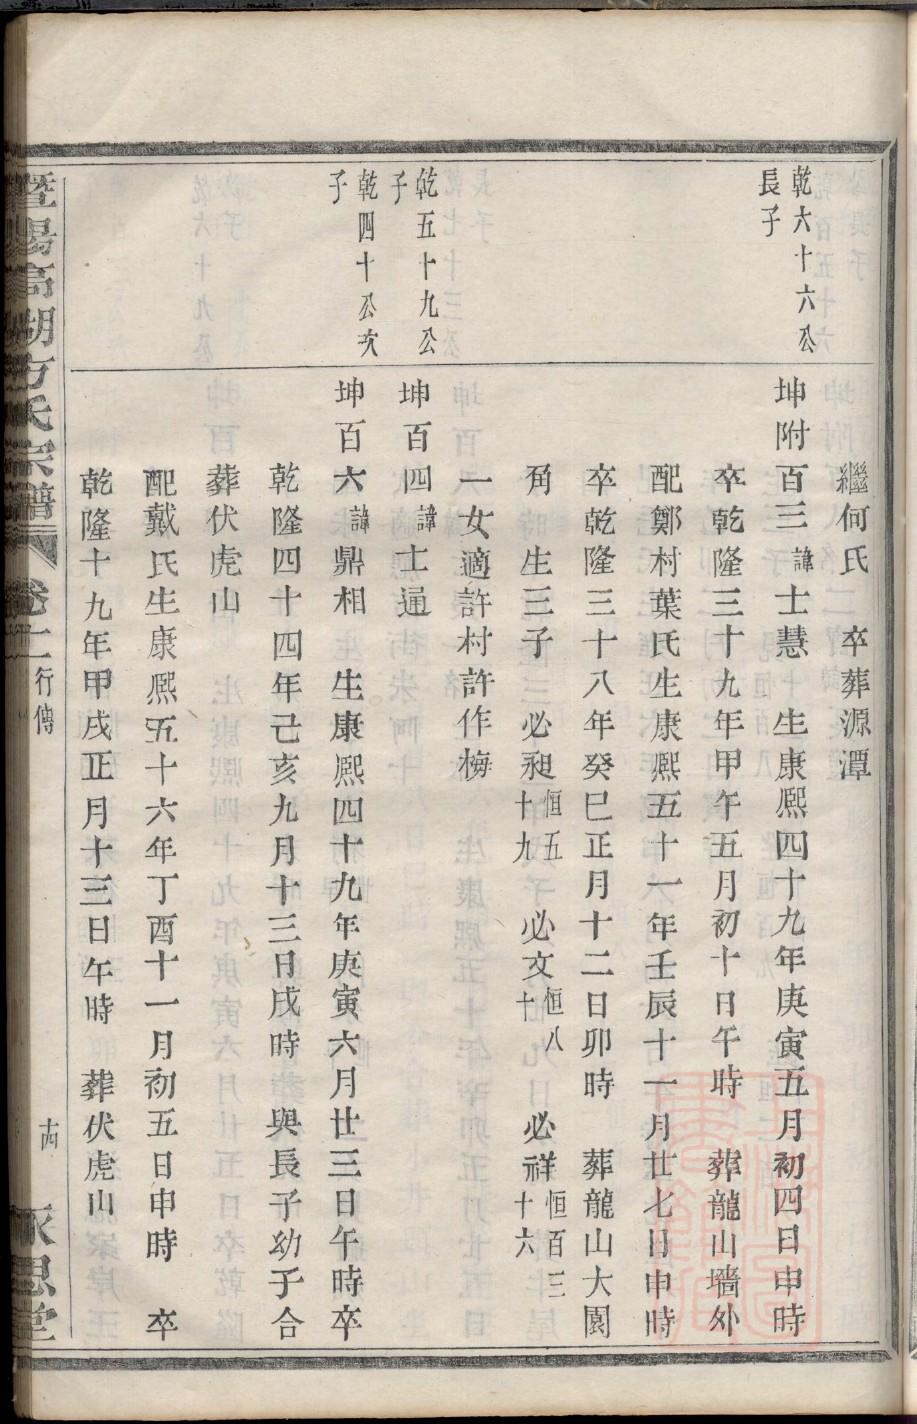 繼何氏 卒葬源潭
乾六十六公
長子
坤附百三諱士慧 生康熈四十九年庚寅五月初四日申時
卒乾隆三十九年甲午五月初十日午時 葬龍山墻外
配鄭村葉氏生康熈五十一年壬辰十一月廿七日申時
卒乾隆三十八年癸巳正月十二日卯時 葬龍山大園
角 生三子 必昶恒五十九 必文恒八十 必祥恒百三十六
一女適許村許作梅
乾五十九公
子
坤百四諱士通
乾四十公次
子
坤百六諱鼎相 生康熈四十九年庚寅六月廿三日午時卒
乾隆四十四年己亥九月十三日戌時與長子幼子合
葬伏虎山
配戴氏生康熈五十六年丁酉十一月初五日申時 卒
乾隆十九年甲戌正月十三日午時 葬伏虎山
暨陽高湖方氏宗譜 卷二 行傳 永思堂